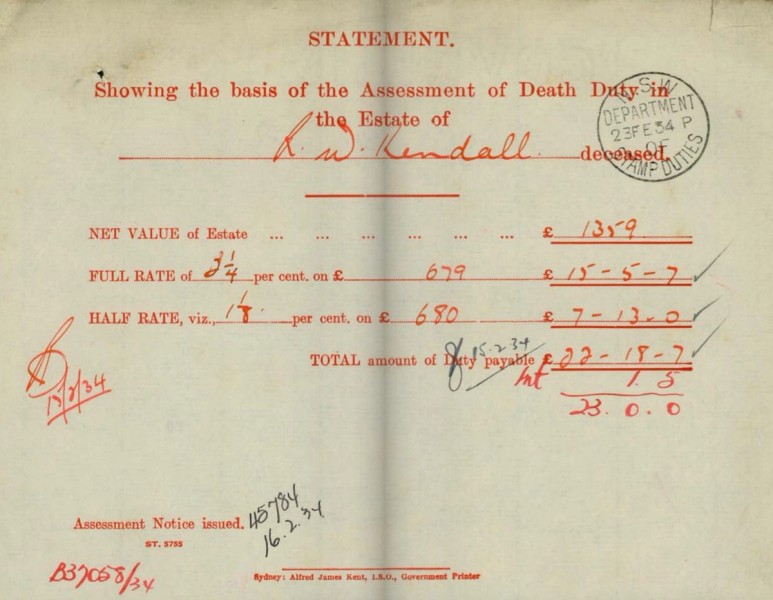 STATEMENT.
Showing the basis of the Assessment of Death Duty in
the Estate of
R. W. Kendall deceased.
N.S.W.
DEPARTMENT
23 FE 34 P
OF
STAMP DUTIES
NET VALUE of Estate ... ... ... ... ... ... £ 1359
FULL RATE of 2 1/4 per cent. on £ 679 £ 15-5-7
HALF RATE, viz., 1 1/8 per cent. on £ 680 £ 7-13-0
15.2.34
TOTAL amount of Duty payable £ 22-18-7
Int 1.5
23.0.0
13/2/34
Assessment Notice issued. 45784
16.2.34
ST. 5755
B37058/34
Sydney: Alfred James Kent, I.S.O., Government Printer